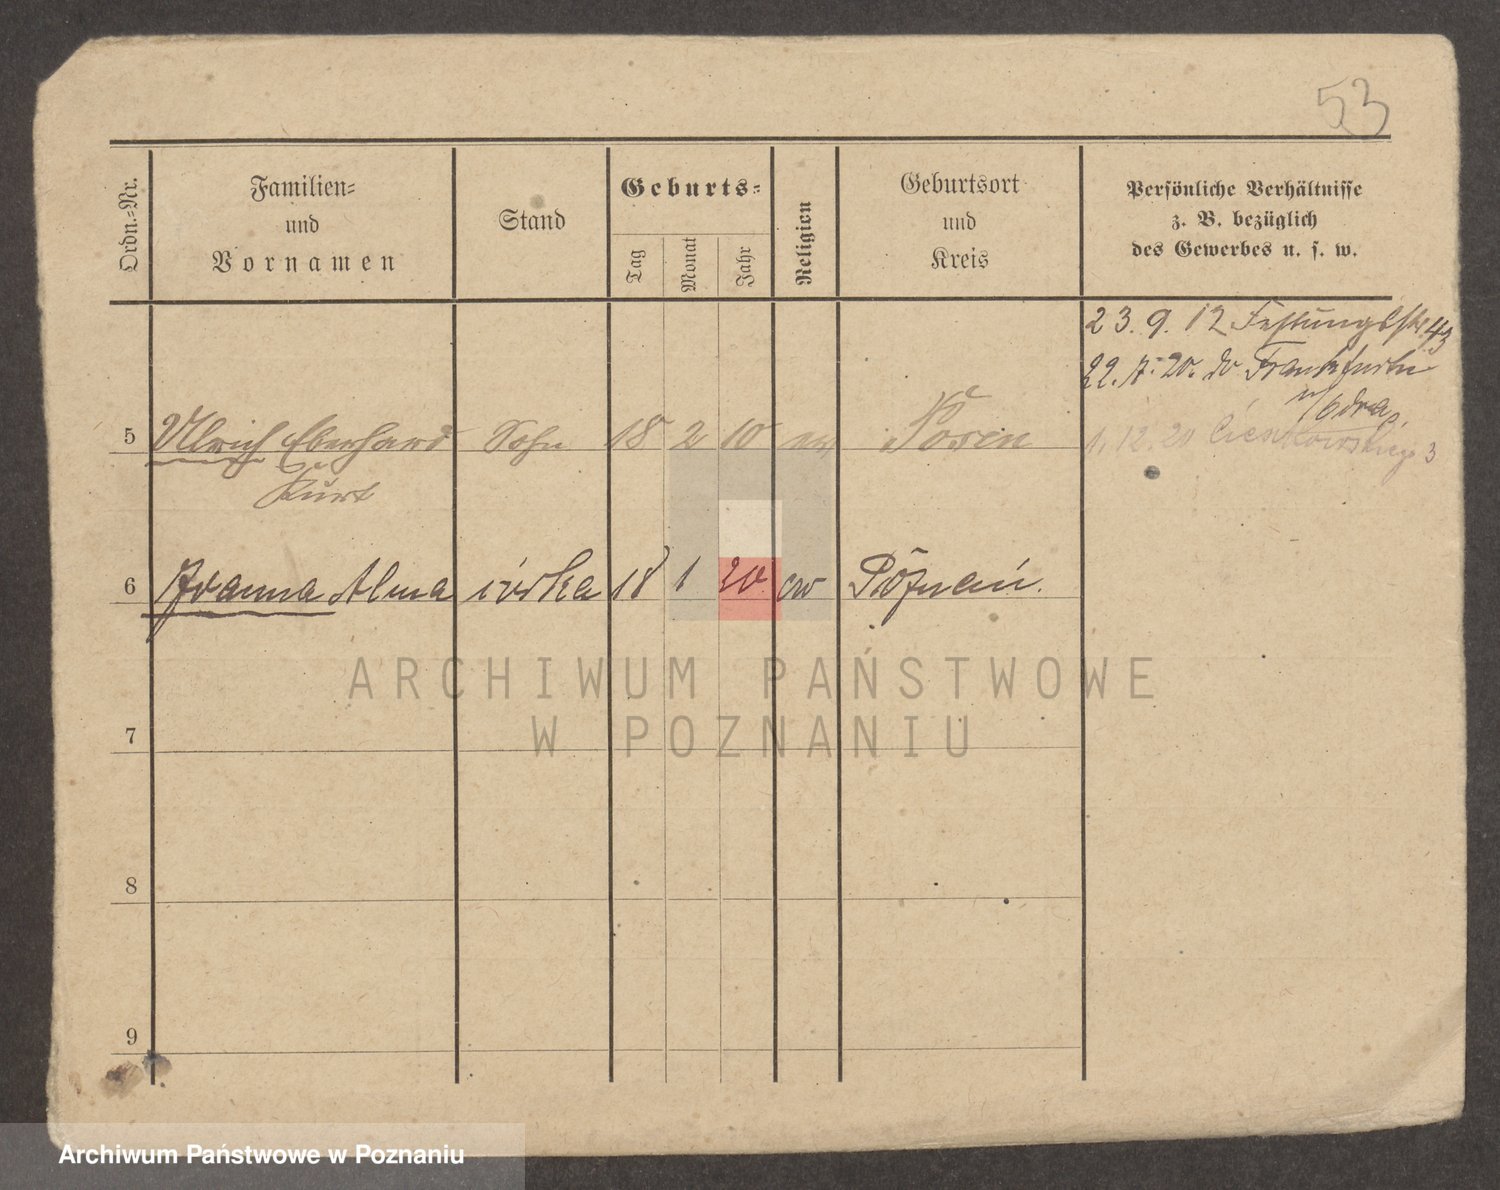 53
Ordn.-Nr.
Familien-
und
Vornamen
Stand
Geburts-
Tag
Monat
Jahr
Religion
Geburtsort
und
Kreis
Persönliche Verhältnisse
z. B. bezüglich
des Gewerbes u. s. w.
23. 9. 12 Festungsstr. 43
22. 7. 20. do Frankfurtu
n/Odrą
1. 12. 20 Cieszkowskiego 3
5 Ulrich Eberhard Sohn 18 2 10 ev Posen
Kurt
6 Joanna Alma córka 18 1 20 ew Poznań.
ARCHIWUM PAŃSTWOWE
W POZNANIU
7
8
9
Archiwum Państwowe w Poznaniu